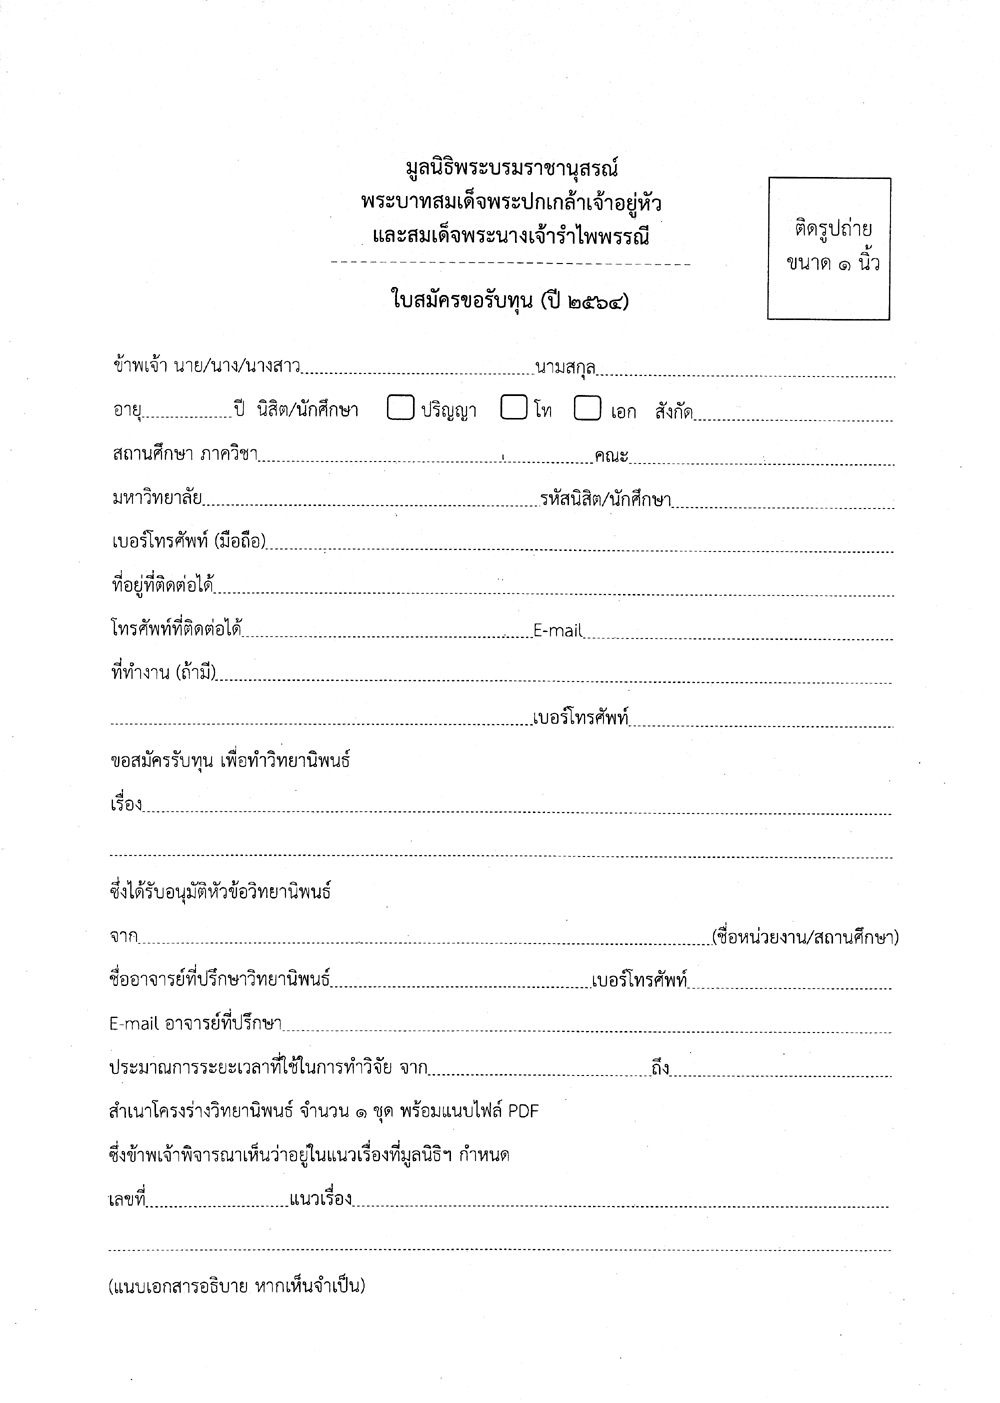 มูลนิธิพระบรมราชานุสรณ์
พระบาทสมเด็จพระปกเกล้าเจ้าอยู่หัว
และสมเด็จพระนางเจ้ารำไพพรรณี
ติดรูปถ่าย
ขนาด ๑ นิ้ว
ใบสมัครขอรับทุน (ปี ๒๕๖๔)
ข้าพเจ้า นาย/นาง/นางสาว นามสกุล
อายุ ปี นิสิต/นักศึกษา ปริญญา โท เอก สังกัด
สถานศึกษา ภาควิชา คณะ
มหาวิทยาลัย รหัสนิสิต/นักศึกษา
เบอร์โทรศัพท์ (มือถือ)
ที่อยู่ที่ติดต่อได้
โทรศัพท์ที่ติดต่อได้ E-mail
ที่ทำงาน (ถ้ามี)
เบอร์โทรศัพท์
ขอสมัครรับทุน เพื่อทำวิทยานิพนธ์
เรื่อง
ซึ่งได้รับอนุมัติหัวข้อวิทยานิพนธ์
จาก (ชื่อหน่วยงาน/สถานศึกษา)
ชื่ออาจารย์ที่ปรึกษาวิทยานิพนธ์ เบอร์โทรศัพท์
E-mail อาจารย์ที่ปรึกษา
ประมาณการระยะเวลาที่ใช้ในการทำวิจัย จาก ถึง
สำเนาโครงร่างวิทยานิพนธ์ จำนวน ๑ ชุด พร้อมแนบไฟล์ PDF
ซึ่งข้าพเจ้าพิจารณาเห็นว่าอยู่ในแนวเรื่องที่มูลนิธิฯ กำหนด
เลขที่ แนวเรื่อง
(แนบเอกสารอธิบาย หากเห็นจำเป็น)